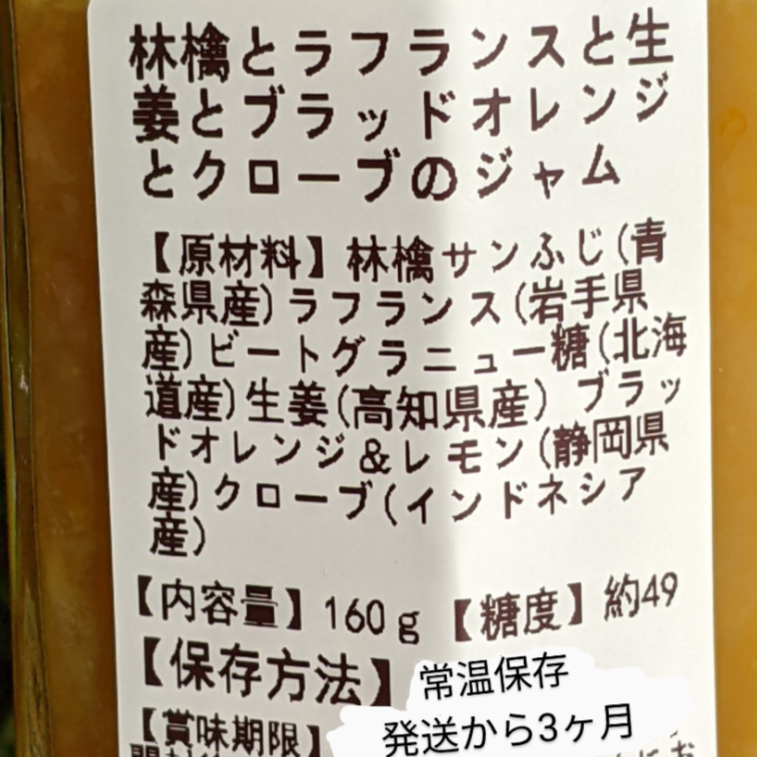 林檎とラフランスと生
姜とブラッドオレンジ
とクローブのジャム
【原材料】林檎サンふじ(青
森県産)ラフランス(岩手県
産)ビートグラニュー糖(北海
道産)生姜(高知県産) ブラッ
ドオレンジ&レモン(静岡県
産)クローブ(インドネシア
産)
【内容量】160g 【糖度】約49
【保存方法】 常温保存
【賞味期限】 発送から3ヶ月